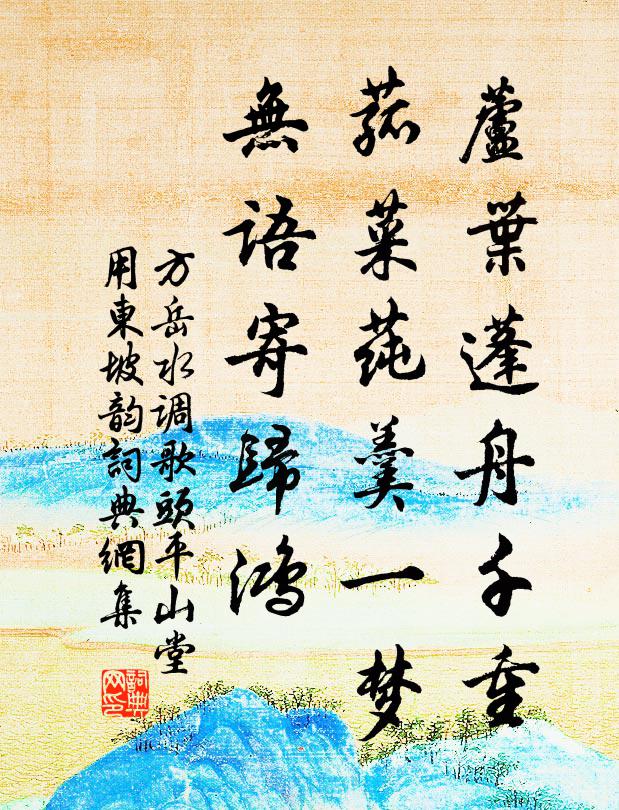 蘆葉蓬舟千重
菰菜莼羹一梦
無語寄歸鸿
方岳水调歌頭平山堂
用東坡韵詞典網集
詞典网印